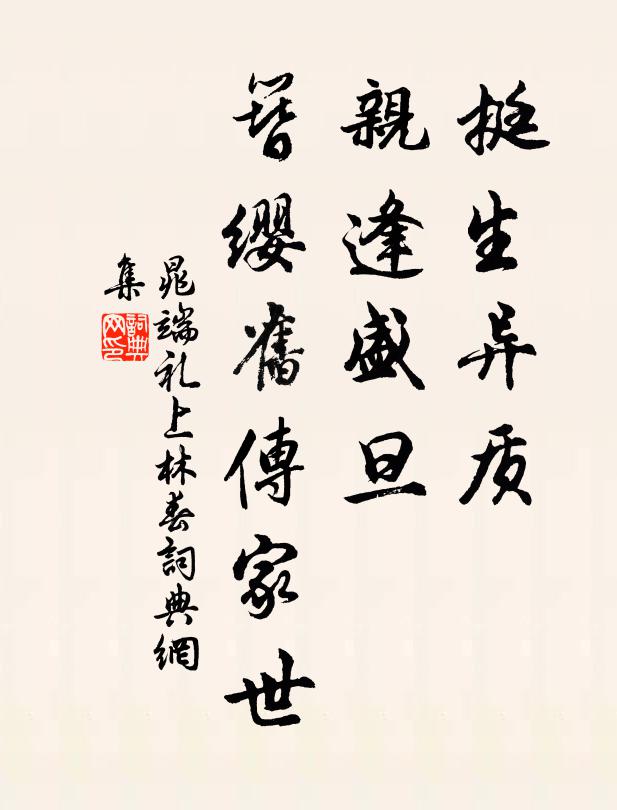 挺生异质
親逢盛旦
簪缨舊傳家世
晁端礼上林春詞典網
集
詞典
网印